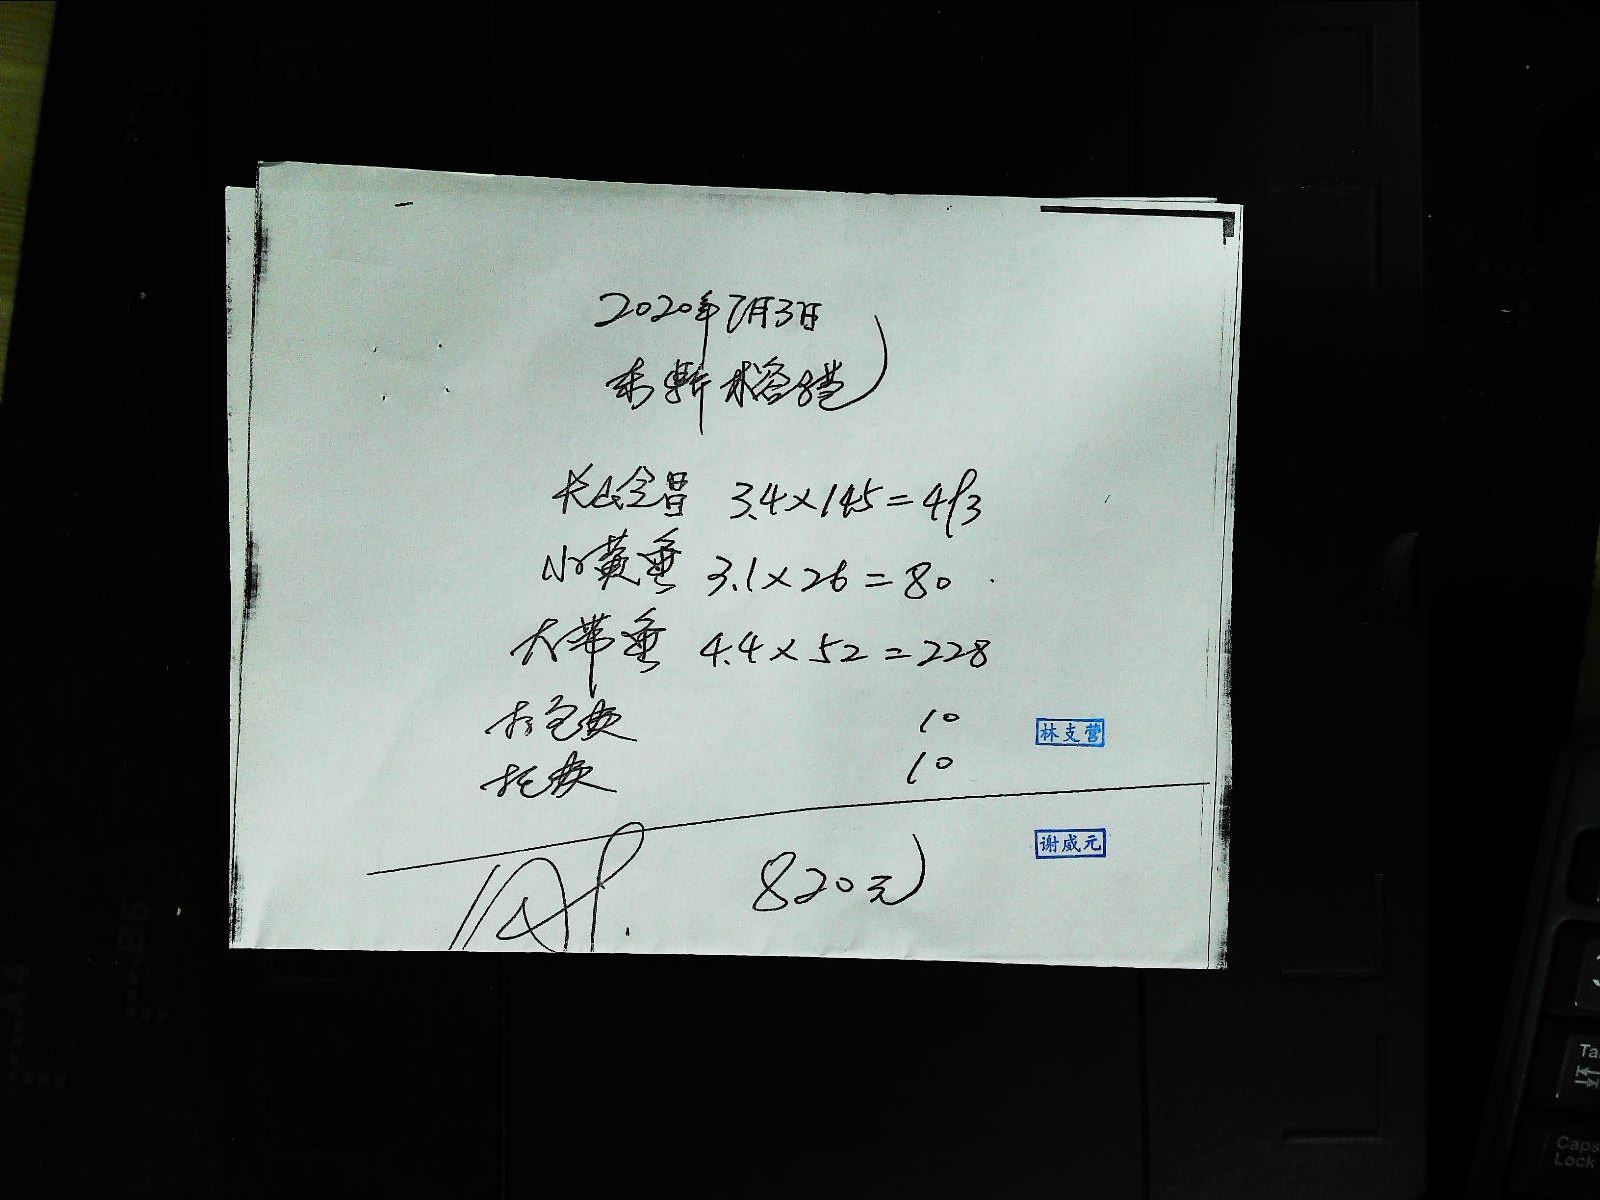 2020年7月3日
长山仓昌 3.4×145=493
小黄鱼 3.1×26=80
大带鱼 4.4×52=228
打包费 10
托费 10
林支营
820元
谢威元
A4
B5
Tab
Caps
Lock